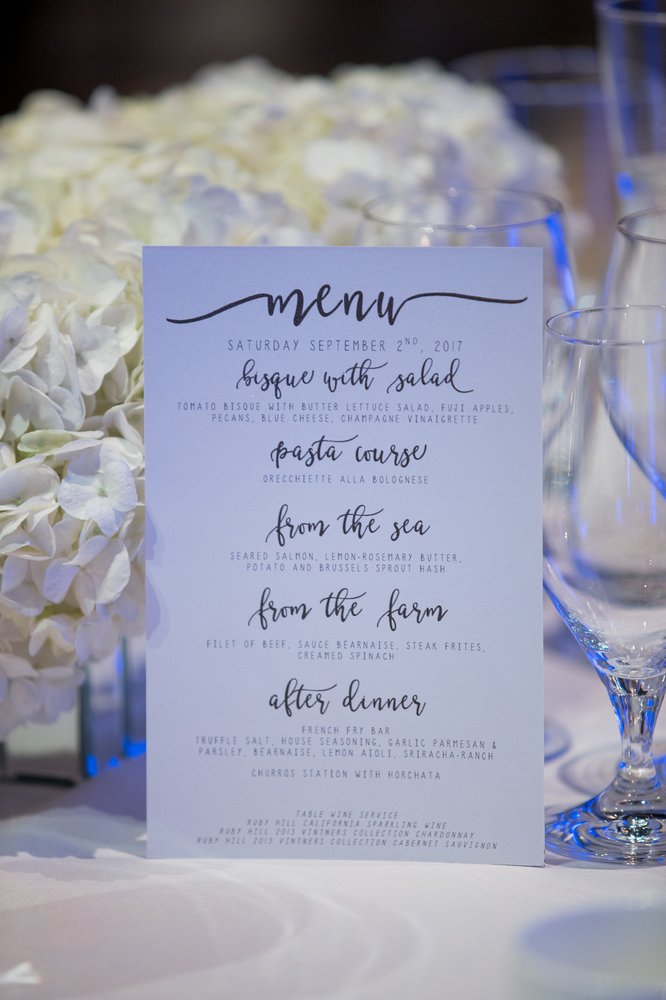 menu
SATURDAY SEPTEMBER 2ND, 2017
bisque with salad
TOMATO BISQUE WITH BUTTER LETTUCE SALAD, FUJI APPLES,
PECANS, BLUE CHEESE, CHAMPAGNE VINAIGRETTE
pasta course
ORECCHIETTE ALLA BOLOGNESE
from the sea
SEARED SALMON, LEMON-ROSEMARY BUTTER,
POTATO AND BRUSSELS SPROUT HASH
from the farm
FILET OF BEEF, SAUCE BÉARNAISE, STEAK FRITES,
CREAMED SPINACH
after dinner
FRENCH FRY BAR
TRUFFLE SALT, HOUSE SEASONING, GARLIC PARMESAN &
PARSLEY, BÉARNAISE, LEMON AIOLI, SRIRACHA-RANCH
CHURROS STATION WITH HORCHATA
TABLE WINE SERVICE
RUBY HILL CALIFORNIA SPARKLING WINE
RUBY HILL 2013 VINTNERS COLLECTION CHARDONNAY
RUBY HILL 2013 VINTNERS COLLECTION CABERNET SAUVIGNON